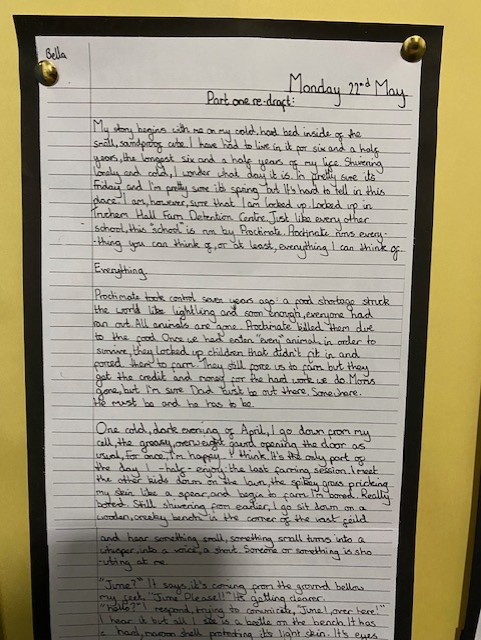 Bella
Monday 22nd May
Part one re-draft:
My story begins with me on my cold, hard bed inside of the
small, sandproof cube I have had to live in it for six and a half
years, the longest six and a half years of my life. Shivering
lonely and cold, I wonder what day it is. I'm pretty sure its
Friday and I'm pretty sure its spring but It's hard to tell in this
place. I am, however, sure that I am locked up. Locked up in
Hall Farm Detention Centre. Just like every other
school, this "school" is run by Proctimate. Proctimate runs every-
-thing you can think of, or at least, everything I can think of.
Everything.
Proctimate took control seven years ago: a food shortage struck
the world like lightling and soon enough, everyone had
ran out. All animals are gone. Proctimate killed them due
to the food. Once we had eaten "every" animal, in order to
survive, they locked up children that didn't fit in and
forced them to farm. They still force us to farm but they
get the credit and money for the hard work we do. Moms
gone, but I'm sure Dad must be out there. Somewhere.
He must be and he has to be.
One cold, dark evening of April, I go down from my
cell, the greasy, overweight gaurd opening the door as
usual, for once, I'm happy I think. It's the only part of
the day I -half- enjoy: the last farming session. I meet
the other kids down on the lawn, the spikey grass pricking
my skin like a spear, and begin to farm. I'm bored. Really
bored. Still shivering from earlier, I go sit down on a
wooden, creeky bench in the corner of the vast feild
and hear something small, something small turns into a
whisper, into a voice, a shout. Someone or something is sho
uting at me.
"June?" It says, it's coming from the ground bellow
my feet, "June Please!!" Its getting clearer.
"Hello?" I respond, trying to comunicate, "June!, over here!"
I hear it but all I see is a beetle on the bench. It has
a hard, maroon shell protecting it's light skin. It's eyes